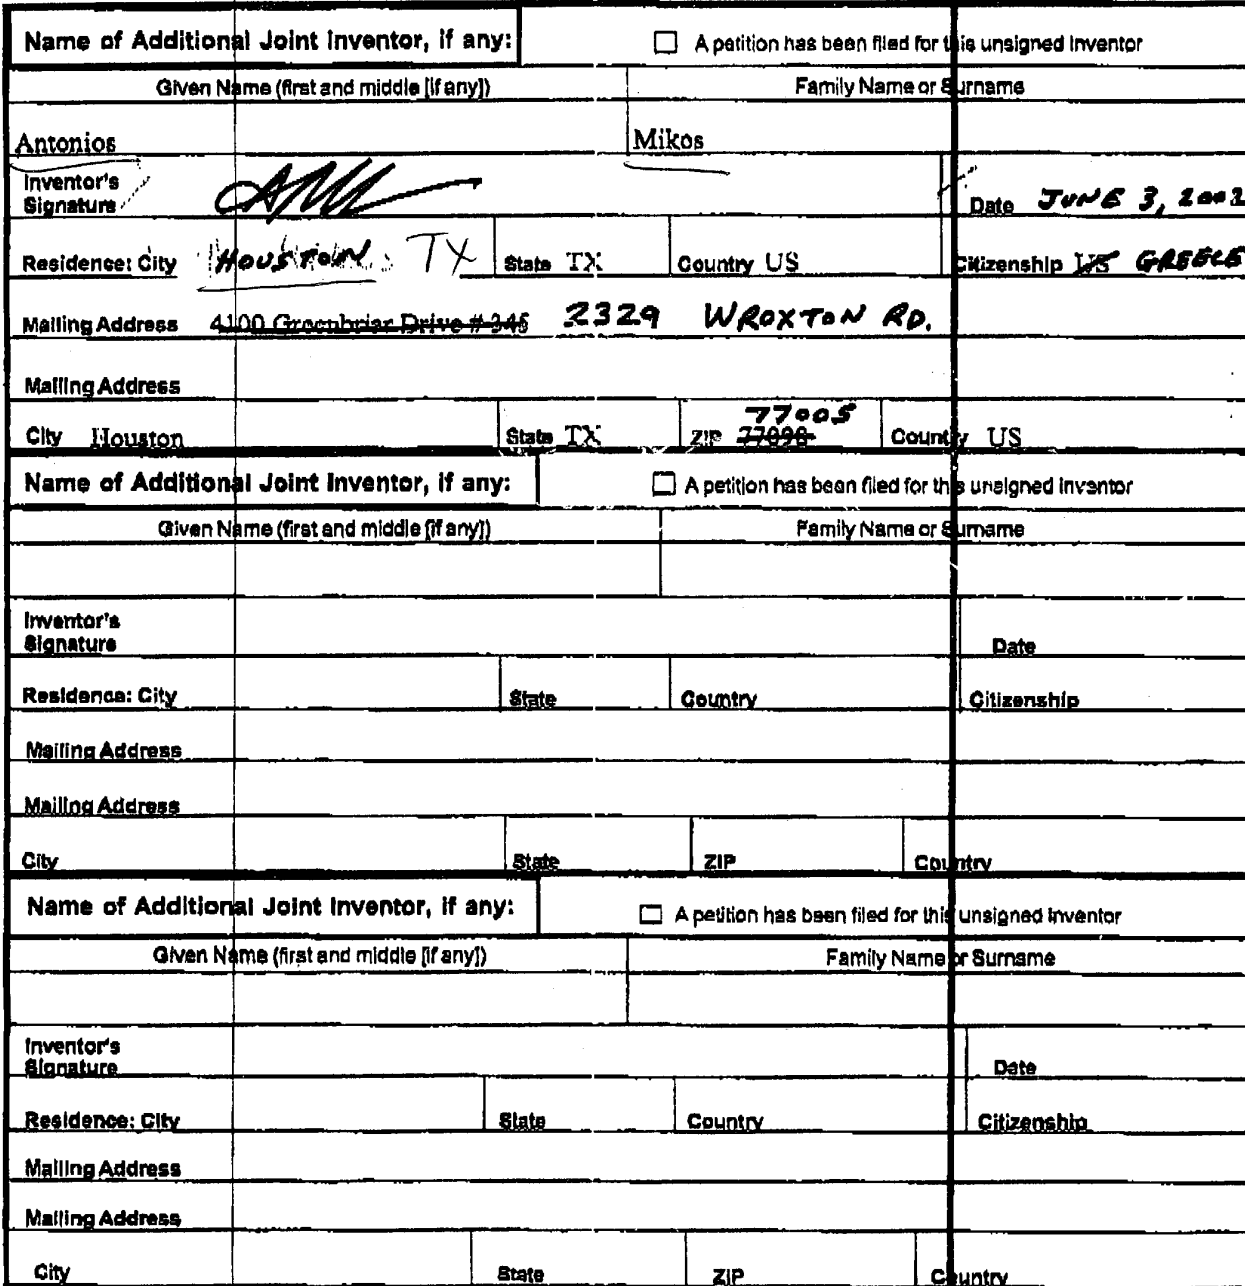 Name of Additional Joint Inventor, if any: A petition has been filed for this unsigned inventor
Given Name (first and middle [if any]) Family Name or Surname
Antonios Mikos
Inventor's
Signature Date JUNE 3, 2002
Residence: City HOUSTON TX State TX Country US Citizenship US GREECE
Mailing Address 4100 Greenbriar Drive # 345 2329 WROXTON RD.
Mailing Address
77005
City Houston State TX ZIP 77098 Country US
Name of Additional Joint Inventor, if any: A petition has been filed for this unsigned inventor
Given Name (first and middle [if any]) Family Name or Surname
Inventor's
Signature Date
Residence: City State Country Citizenship
Mailing Address
Mailing Address
City State ZIP Country
Name of Additional Joint Inventor, if any: A petition has been filed for this unsigned inventor
Given Name (first and middle [if any]) Family Name or Surname
Inventor's
Signature Date
Residence: City State Country Citizenship
Mailing Address
Mailing Address
City State ZIP Country